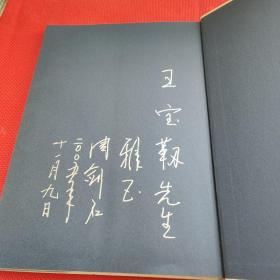 王宝韧先生
雅正
周剑石
二〇〇五年
十一月九日